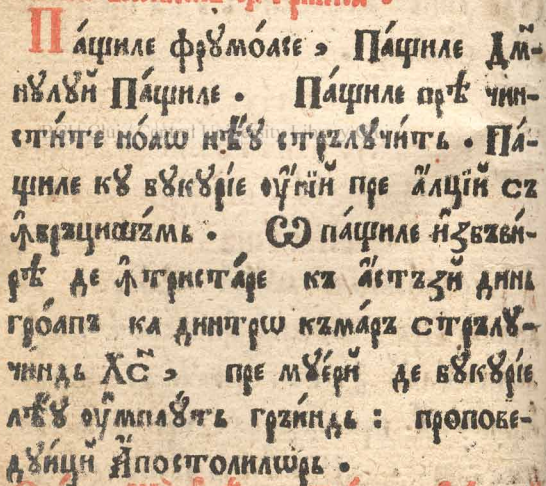 Па́щиле фрꙋмо́асе , Па́щиле Дм҃-
нꙋлꙋй Па́щиле . Па́щиле прѣ́ чин-
сти́те но́аѡ нѣ́ꙋ стрълꙋчи́ть . Па́-
щиле кꙋ бꙋкꙋрі́е ᲂу҆́нїй пре а҆́лцїй съ
ꙟбръцишъ́мь . Ѽ па́щиле и҆збъви́-
рѣ́ де ꙟтриста́ре къ а҆́стъзй динь
гро́апъ ка динтрѡ къма́ръ стрълꙋ-
чи́ндь Хс҃ , пре мꙋе́рй де бꙋкꙋрі́е
лѣ́ꙋ ᲂу҆мплꙋ́ть гръи́ндь : проповe-
дꙋи́цй А҆постолилѡрь .